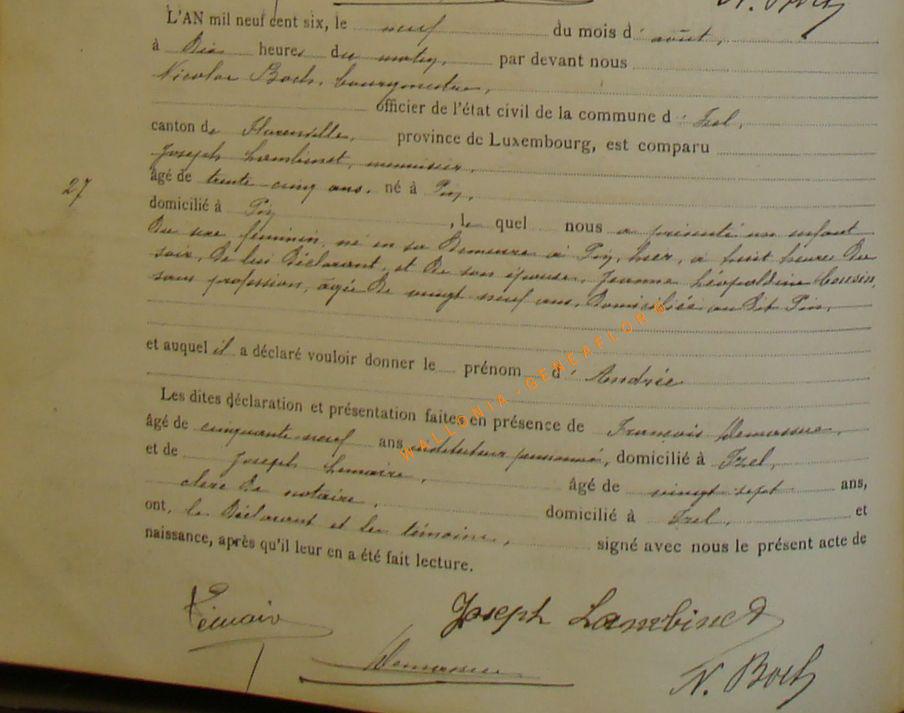 N. Boch
L'AN mil neuf cent six, le neuf du mois d' août,
à dix heures du matin, par devant nous
Nicolas Boch, bourgmestre,
officier de l'état civil de la commune d' Izel,
canton de Florenville, province de Luxembourg, est comparu
Joseph Lambinet, menuisier,
27
âgé de trente cinq ans, né à Pin,
domicilié à Pin, le quel nous a présenté un enfant
du sexe féminin, né en sa demeure à Pin, hier, à huit heures du
soir, de lui déclarant, et de son épouse, Jeanne Léopoldine Cousin,
sans profession, âgée de vingt neuf ans, domiciliée au dit Pin,
et auquel il a déclaré vouloir donner le prénom d' Andrée
Les dites déclaration et présentation faites en présence de François
âgé de cinquante neuf ans instituteur pensionné, domicilié à Izel,
et de Joseph Lemaire, âgé de vingt sept ans,
clerc de notaire, domicilié à Izel, et
ont, le déclarant et les témoins, signé avec nous le présent acte de
naissance, après qu'il leur en a été fait lecture.
Joseph Lambinet
N. Boch
WALLONIA - GENEAFLORE